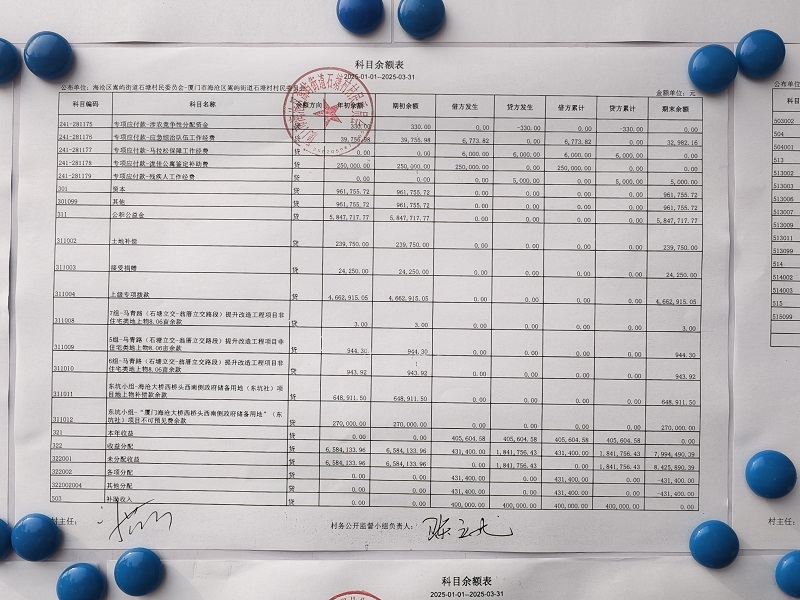 科目余额表
2025-01-01--2025-03-31
公布单位：海沧区嵩屿街道石塘村民委员会-厦门市海沧区嵩屿街道石塘村村民委员会 金额单位：元
科目编码 科目名称 余额方向 年初余额 期初余额 借方发生 贷方发生 借方累计 贷方累计 期末余额
241-281175 专项应付款-涉农竞争性分配资金 贷 330.00 330.00 0.00 -330.00 0.00 -330.00 0.00
241-281176 专项应付款-应急综治队伍工作经费 贷 39,755.98 39,755.98 6,773.82 0.00 6,773.82 0.00 32,982.16
241-281177 专项应付款-马拉松保障工作经费 贷 0.00 0.00 6,000.00 6,000.00 6,000.00 6,000.00 0.00
241-281178 专项应付款-流佳公寓鉴定补助费 贷 250,000.00 250,000.00 250,000.00 0.00 250,000.00 0.00 0.00
241-281179 专项应付款-残疾人工作经费 贷 0.00 0.00 0.00 5,000.00 0.00 5,000.00 5,000.00
301 资本 贷 961,755.72 961,755.72 0.00 0.00 0.00 0.00 961,755.72
301099 其他 贷 961,755.72 961,755.72 0.00 0.00 0.00 0.00 961,755.72
311 公积公益金 贷 5,847,717.77 5,847,717.77 0.00 0.00 0.00 0.00 5,847,717.77
311002 土地补偿 贷 239,750.00 239,750.00 0.00 0.00 0.00 0.00 239,750.00
311003 接受捐赠 贷 24,250.00 24,250.00 0.00 0.00 0.00 0.00 24,250.00
311004 上级专项拨款 贷 4,662,915.05 4,662,915.05 0.00 0.00 0.00 0.00 4,662,915.05
311008 7组-马青路（石塘立交-翁厝立交路段）提升改造工程项目非住宅类地上物8.06亩余款 贷 3.00 3.00 0.00 0.00 0.00 0.00 3.00
311009 5组-马青路（石塘立交-翁厝立交路段）提升改造工程项目非住宅类地上物8.06亩余款 贷 944.30 944.30 0.00 0.00 0.00 0.00 944.30
311010 6组-马青路（石塘立交-翁厝立交路段）提升改造工程项目非住宅类地上物8.06亩余款 贷 943.92 943.92 0.00 0.00 0.00 0.00 943.92
311011 东坑小组-海沧大桥西桥头西南侧政府储备用地（东坑社）项目地上物补偿款余款 贷 648,911.50 648,911.50 0.00 0.00 0.00 0.00 648,911.50
311012 东坑小组-“厦门海沧大桥西桥头西南侧政府储备用地”（东坑社）项目不可预见费余款 贷 270,000.00 270,000.00 0.00 0.00 0.00 0.00 270,000.00
321 本年收益 贷 0.00 0.00 405,604.58 405,604.58 405,604.58 405,604.58 0.00
322 收益分配 贷 6,584,133.96 6,584,133.96 431,400.00 1,841,756.43 431,400.00 1,841,756.43 7,994,490.39
322001 未分配收益 贷 6,584,133.96 6,584,133.96 0.00 1,841,756.43 0.00 1,841,756.43 8,425,890.39
322002 各项分配 贷 0.00 0.00 431,400.00 0.00 431,400.00 0.00 -431,400.00
322002004 其他分配 贷 0.00 0.00 431,400.00 0.00 431,400.00 0.00 -431,400.00
503 补助收入 贷 0.00 0.00 400,000.00 400,000.00 400,000.00 400,000.00 0.00
村主任： 村务公开监督小组负责人：
科目余额表
2025-01-01--2025-03-31
公布单位
科目
503002
504
504001
513
513002
513003
513006
513007
513009
513011
513099
514
514002
514003
515
515099
村主任：